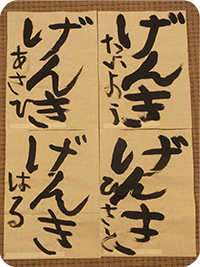 げんき
たいよう
げんき
あさひ
げんき
ひさと
げんき
はる